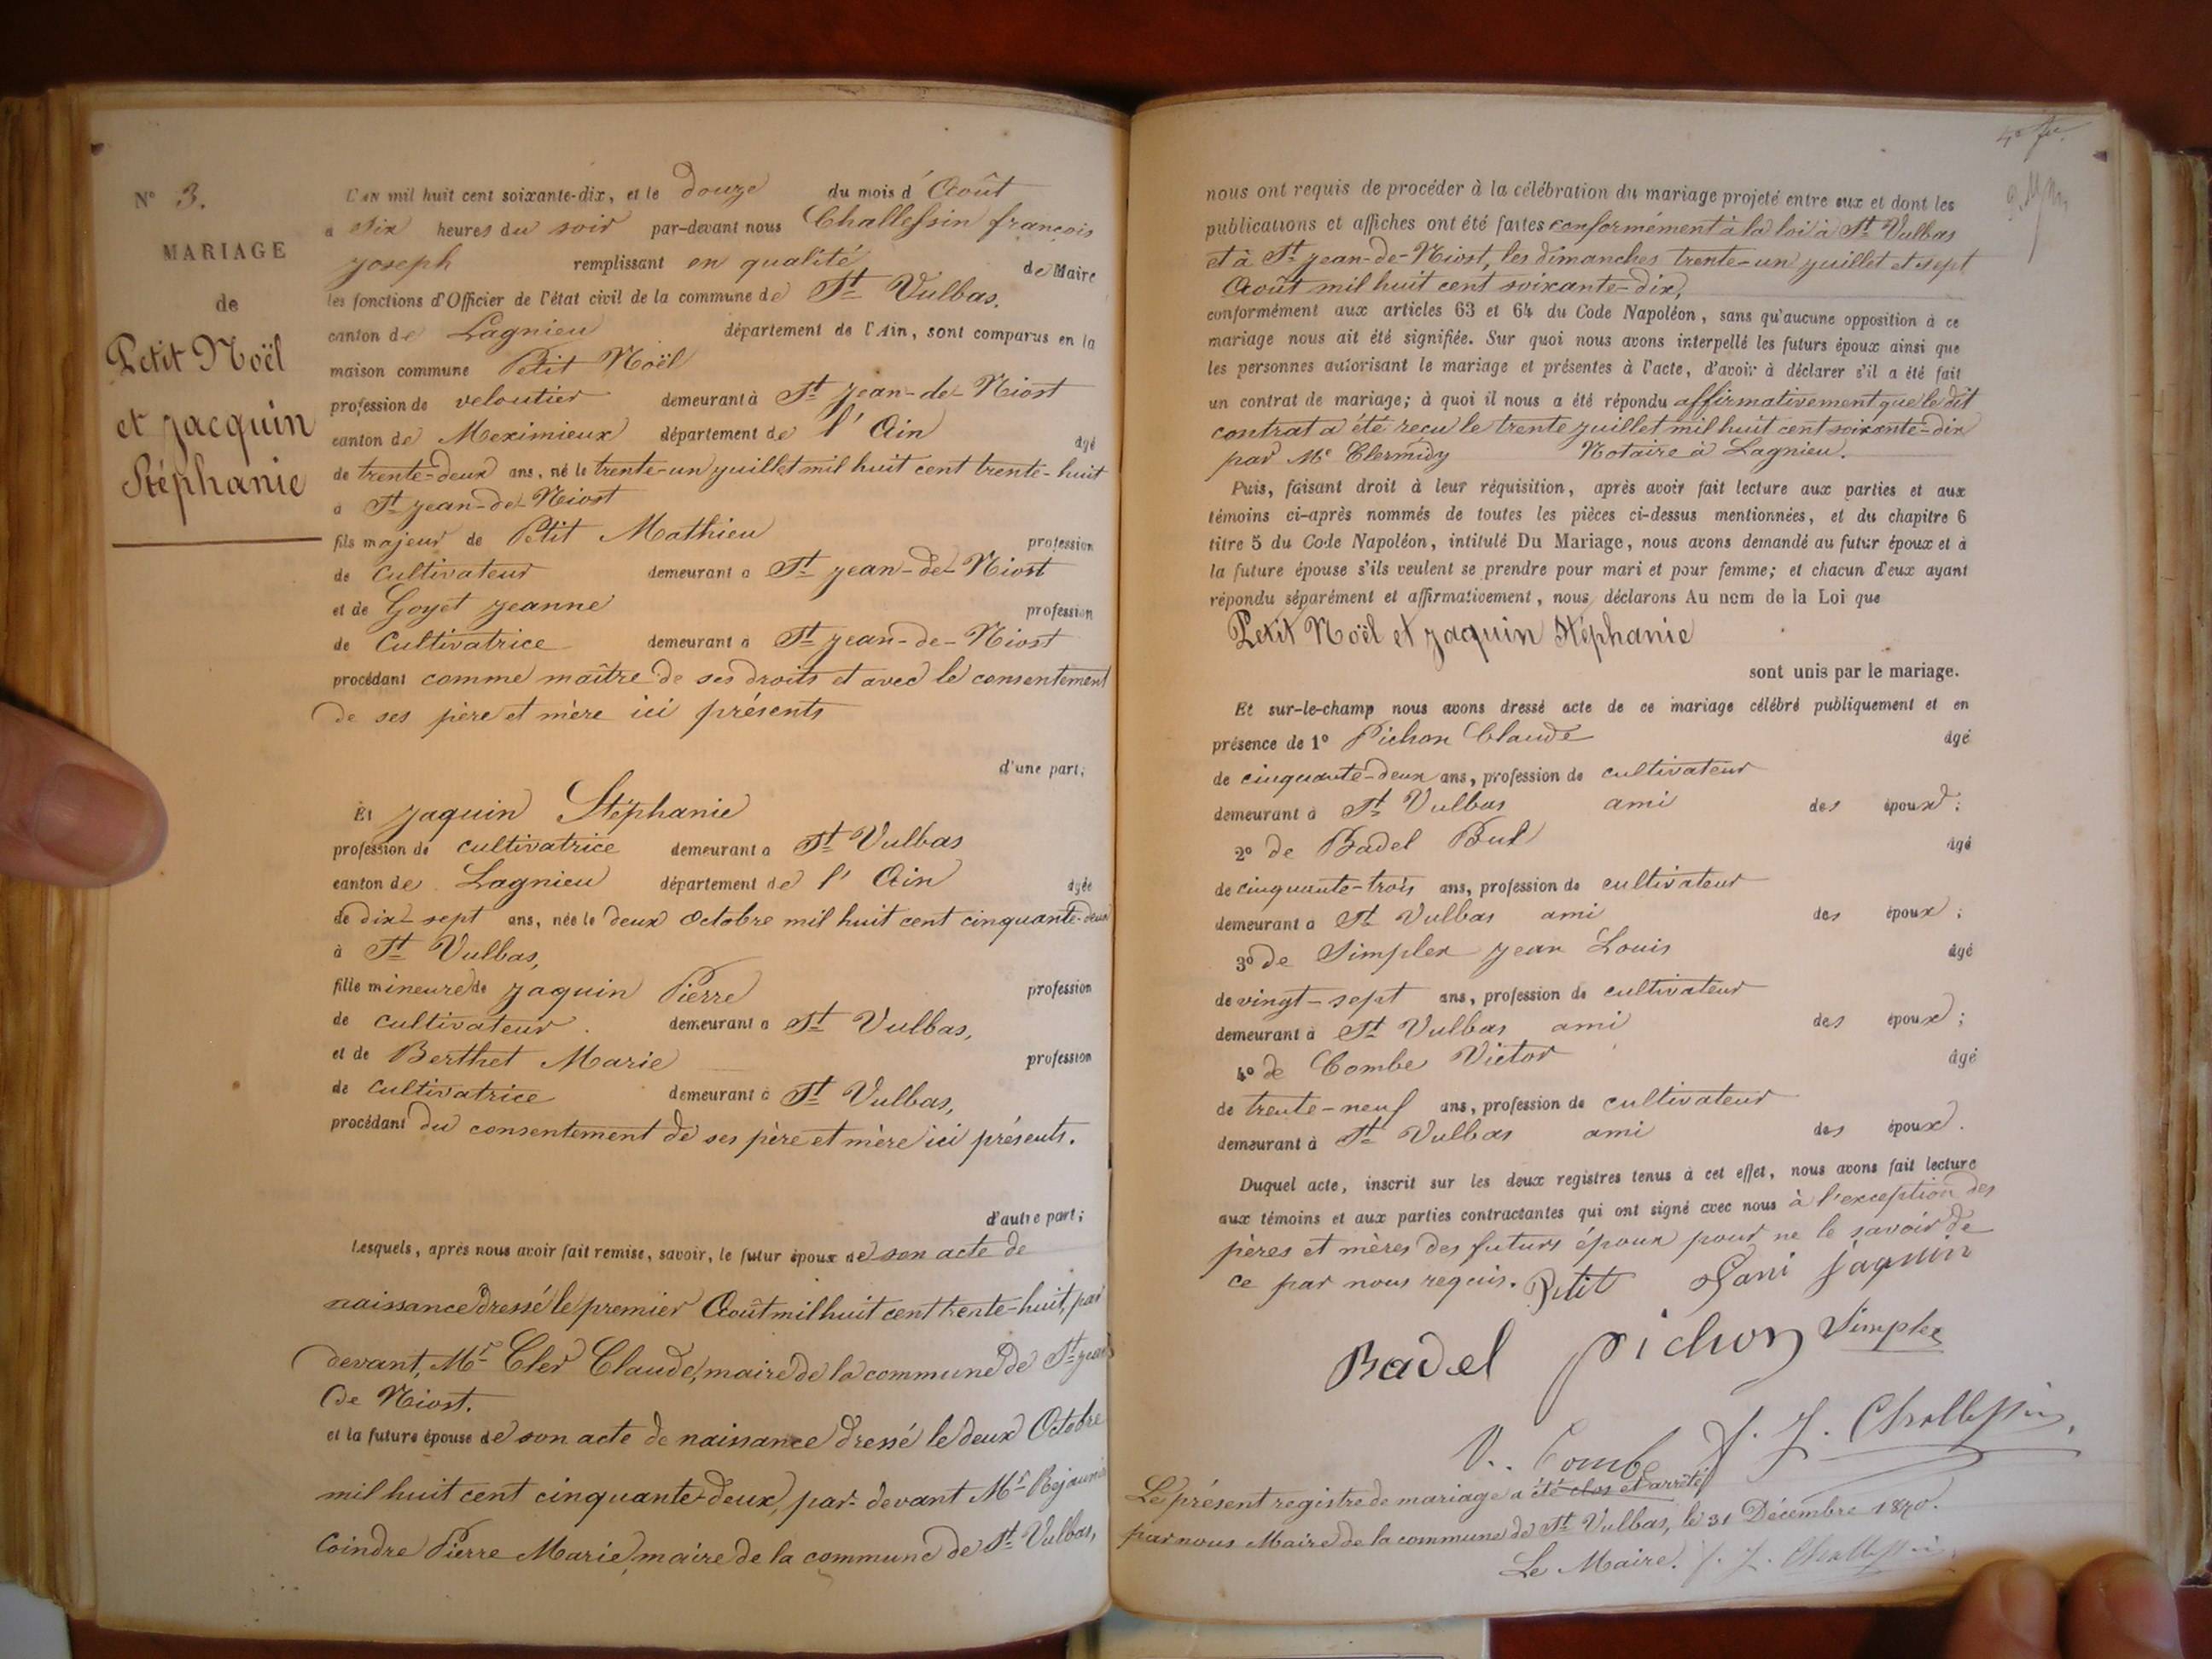 N° 3.
MARIAGE
de
Petit Noël
et Jacquin
Stéphanie
L'AN mil huit cent soixante-dix, et le douze du mois d'Août
à six heures du soir par-devant nous Challessin françois
Joseph remplissant en qualité de Maire
les fonctions d'Officier de l'état civil de la commune de St Vulbas,
canton de Lagnieu département de l'Ain, sont comparus en la
maison commune Petit Noël
profession de veloutier demeurant à St Jean-de-Niost
canton de Meximieux département de l'Ain âgé
de trente-deux ans, né le trente-un juillet mil huit cent trente-huit
à St Jean-de-Niost
fils majeur de Petit Mathieu profession
de cultivateur demeurant à St Jean-de-Niost
et de Goyet Jeanne profession
de Cultivatrice demeurant à St Jean-de-Niost
procédant comme maître de ses droits et avec le consentement
de ses père et mère ici présents
d'une part;
Et Jaquin Stéphanie
profession de cultivatrice demeurant à St Vulbas
canton de Lagnieu département de l'Ain âgée
de dix-sept ans, née le deux Octobre mil huit cent cinquante-deux
à St Vulbas,
fille mineure de Jaquin Pierre profession
de cultivateur demeurant à St Vulbas,
et de Berthet Marie profession
de cultivatrice demeurant à St Vulbas,
procédant du consentement de ses père et mère ici présents.
d'autre part;
Lesquels, après nous avoir fait remise, savoir, le futur époux de son acte de
naissance dressé le premier Août mil huit cent trente-huit, par
devant, Mr Cler Claude, maire de la commune de St Jean
de Niost.
et la future épouse de son acte de naissance dressé le deux Octobre
mil huit cent cinquante-deux, par-devant Mr
Coindre Pierre Marie, maire de la commune de St Vulbas,
nous ont requis de procéder à la célébration du mariage projeté entre eux et dont les
publications et affiches ont été faites conformément à la loi à St Vulbas
et à St Jean-de-Niost, les dimanches trente-un juillet et sept
Août mil huit cent soixante-dix,
conformément aux articles 63 et 64 du Code Napoléon, sans qu'aucune opposition à ce
mariage nous ait été signifiée. Sur quoi nous avons interpellé les futurs époux ainsi que
les personnes autorisant le mariage et présentes à l'acte, d'avoir à déclarer s'il a été fait
un contrat de mariage; à quoi il nous a été répondu affirmativement que le dit
contrat a été reçu le trente juillet mil huit cent soixante-dix
par Me Clermidy Notaire à Lagnieu.
Puis, faisant droit à leur réquisition, après avoir fait lecture aux parties et aux
témoins ci-après nommés de toutes les pièces ci-dessus mentionnées, et du chapitre 6
titre 5 du Code Napoléon, intitulé Du Mariage, nous avons demandé au futur époux et à
la future épouse s'ils veulent se prendre pour mari et pour femme; et chacun d'eux ayant
répondu séparément et affirmativement, nous déclarons Au nom de la Loi que
Petit Noël et Jaquin Stéphanie
sont unis par le mariage.
Et sur-le-champ nous avons dressé acte de ce mariage célébré publiquement et en
présence de 1° Pichon Claude âgé
de cinquante-deux ans, profession de cultivateur
demeurant à St Vulbas ami des époux;
2° de Badel But âgé
de cinquante-trois ans, profession de cultivateur
demeurant à St Vulbas ami des époux;
3° de Simplex Jean Louis âgé
de vingt-sept ans, profession de cultivateur
demeurant à St Vulbas ami des époux;
4° de Combe Victor âgé
de trente-neuf ans, profession de cultivateur
demeurant à St Vulbas ami des époux.
Duquel acte, inscrit sur les deux registres tenus à cet effet, nous avons fait lecture
aux témoins et aux parties contractantes qui ont signé avec nous à l'exception des
pères et mères des futurs époux pour ne le savoir de
ce par nous requis. Petit Fani jaquin
Badel pichon Simplex
V. Combe f. J. Challessin
Le présent registre de mariage a été clos et arrêté
par nous Maire de la commune de St Vulbas, le 31 Décembre 1870.
Le Maire. f. J. Challessin